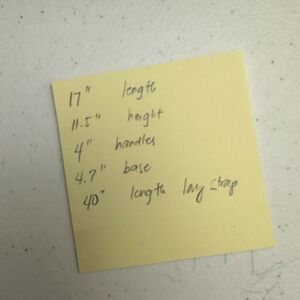 17" length
11.5" height
4" handles
4.7" base
40" length long strap